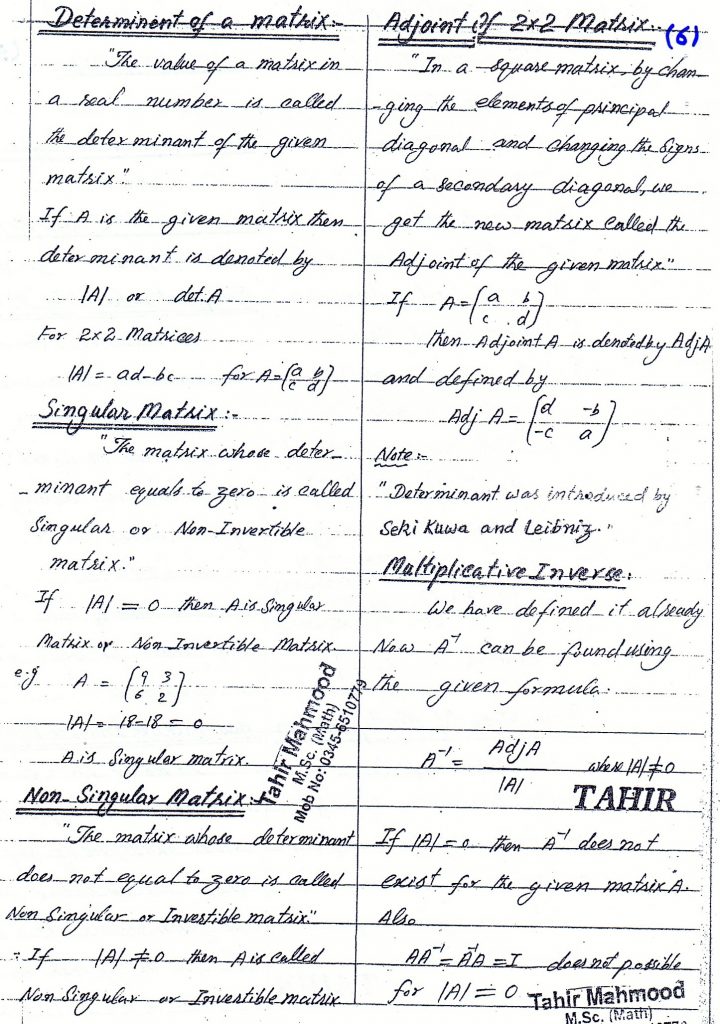 Determinent of a matrix:-
"The value of a matrix in
a real number is called
the determinant of the given
matrix."
If A is the given matrix then
determinant is denoted by
|A| or det.A
For 2x2 Matrices
|A| = ad-bc for A=[a b
c d]
Singular Matrix :-
"The matrix whose deter-
minant equals to zero is called
Singular or Non-Invertible
matrix."
If |A| = 0 then A is Singular
Matrix or Non Invertible Matrix.
e.g A = [9 3
6 2]
|A| = 18-18 = 0
A is Singular matrix.
Non-Singular Matrix:-
"The matrix whose determinant
does not equal to zero is called
Non Singular or Invertible matrix."
If |A| ≠ 0 then A is called
Non Singular or Invertible matrix
Tahir Mahmood
M.Sc. (Math)
Mob No: 0345-6510779
Adjoint of 2x2 Matrix:- (6)
"In a square matrix, by chan-
ging the elements of principal
diagonal and changing the signs
of a secondary diagonal, we
get the new matrix called the
Adjoint of the given matrix."
If A=[a b
c d]
then Adjoint A is denoted by AdjA
and defined by
Adj A = [d -b
-c a]
Note:-
"Determinant was introduced by
Seki Kuwa and Leibniz."
Multiplicative Inverse:
We have defined it already
Now A⁻¹ can be found using
the given formula:
A⁻¹ = AdjA
|A| where |A|≠0
TAHIR
If |A| = 0 then A⁻¹ does not
exist for the given matrix A.
Also
AA⁻¹ = A⁻¹A = I does not possible
for |A| = 0
Tahir Mahmood
M.Sc. (Math)